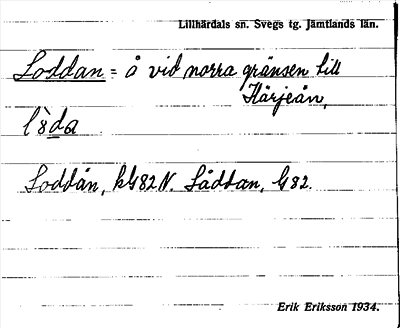 Lillhärdals sn. Svegs tg. Jämtlands län.
Loddan = å vid norra gränsen till
Härjeån,
l`8da
Loddån, kG82N. Låddan, G82.
Erik Eriksson 1934.